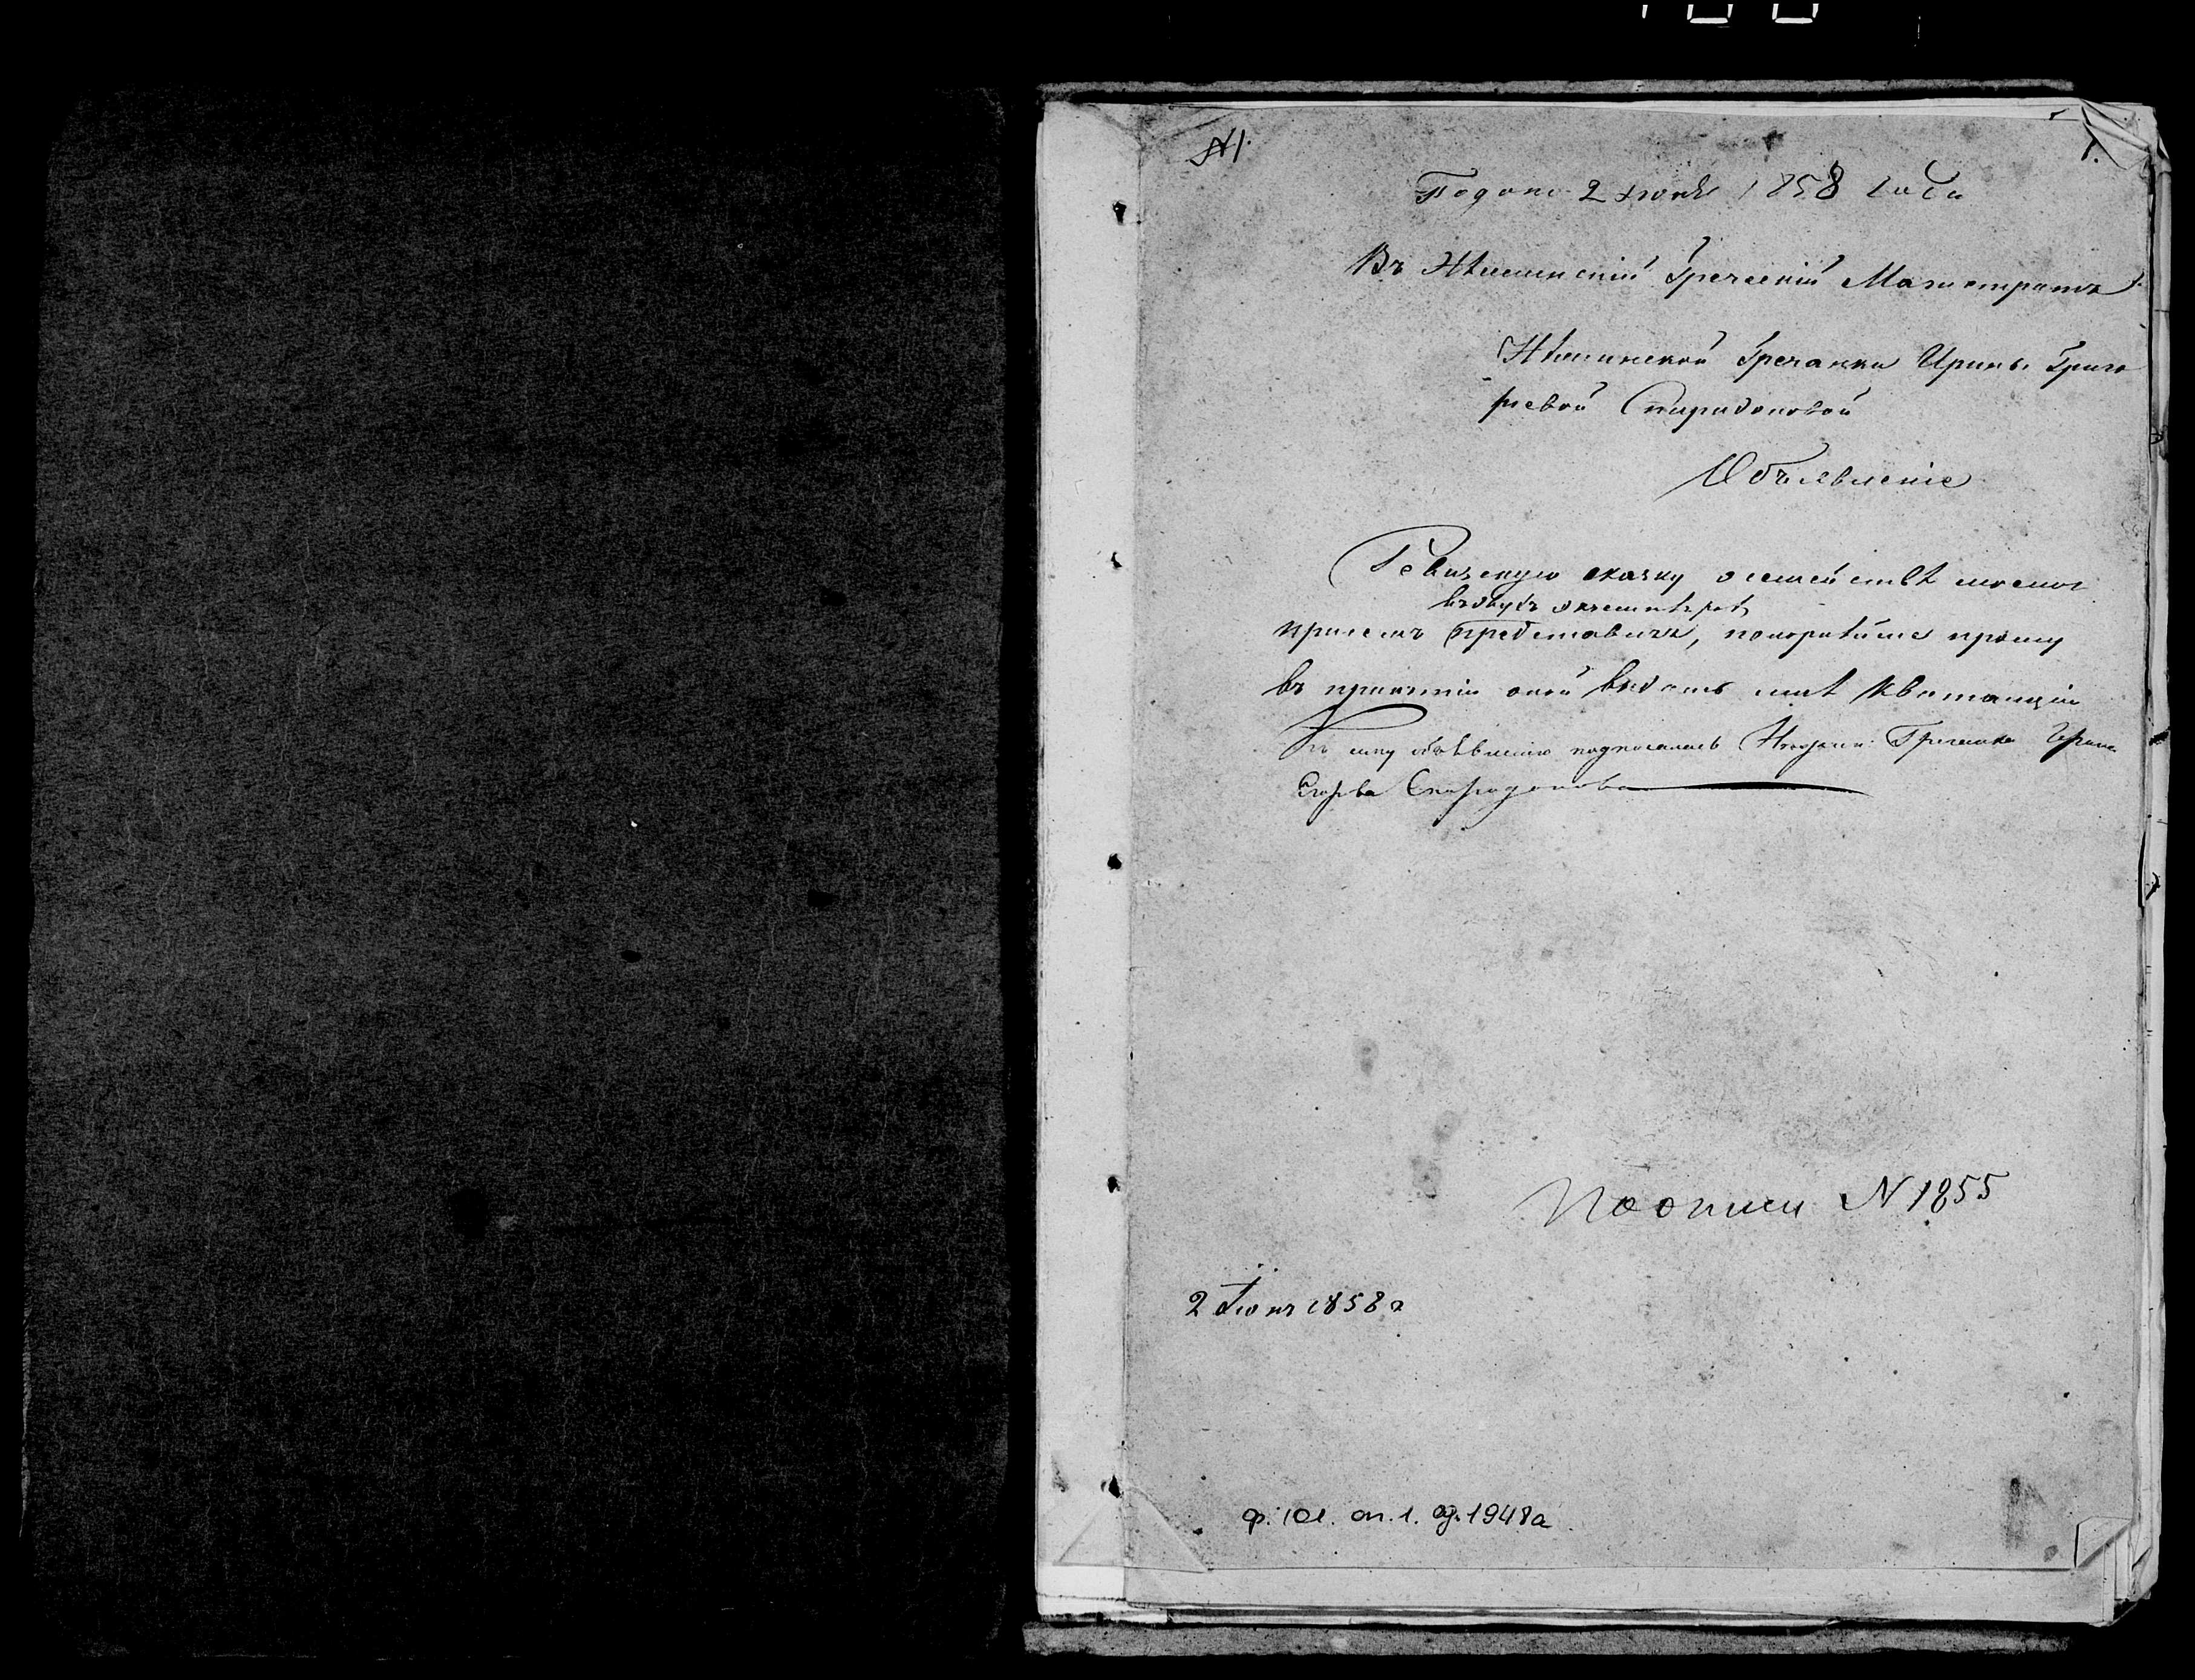 № 1.
1.
Подано 2 Іюня 1858 года
Въ Нѣжинскій Греческій Магистратъ
Нѣжинской Гречанки Ирины Григо
рьевой Спиридоновой
Объявленіе
Ревизскую сказку о семействѣ моемъ
въ двухъ экземплярахъ
при семъ представляя, покорнѣйше прошу
въ принятіи оной выдать мнѣ квитанцію
Къ сему объявленію подписалась Нѣжин: Гречанка Ирина
Спиридонова
По описи N 1855
2 Іюня 1858 г
ф. 101. оп. 1. од. 1948а